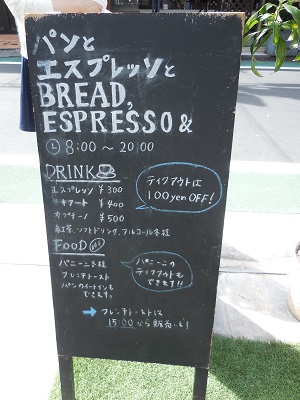 パンと
エスプレッソと
BREAD,
ESPRESSO &
8:00 〜 20:00
DRINK
エスプレッソ ¥300
¥400
カプチーノ ¥500
紅茶、ソフトドリンク、アルコール各種
テイクアウトは
100yen OFF!
FOOD
パニーニ各種
フレンチトースト
パンのイートインも
できます。
パニーニの
テイクアウトも
できます!!
→ フレンチトーストは
15:00から